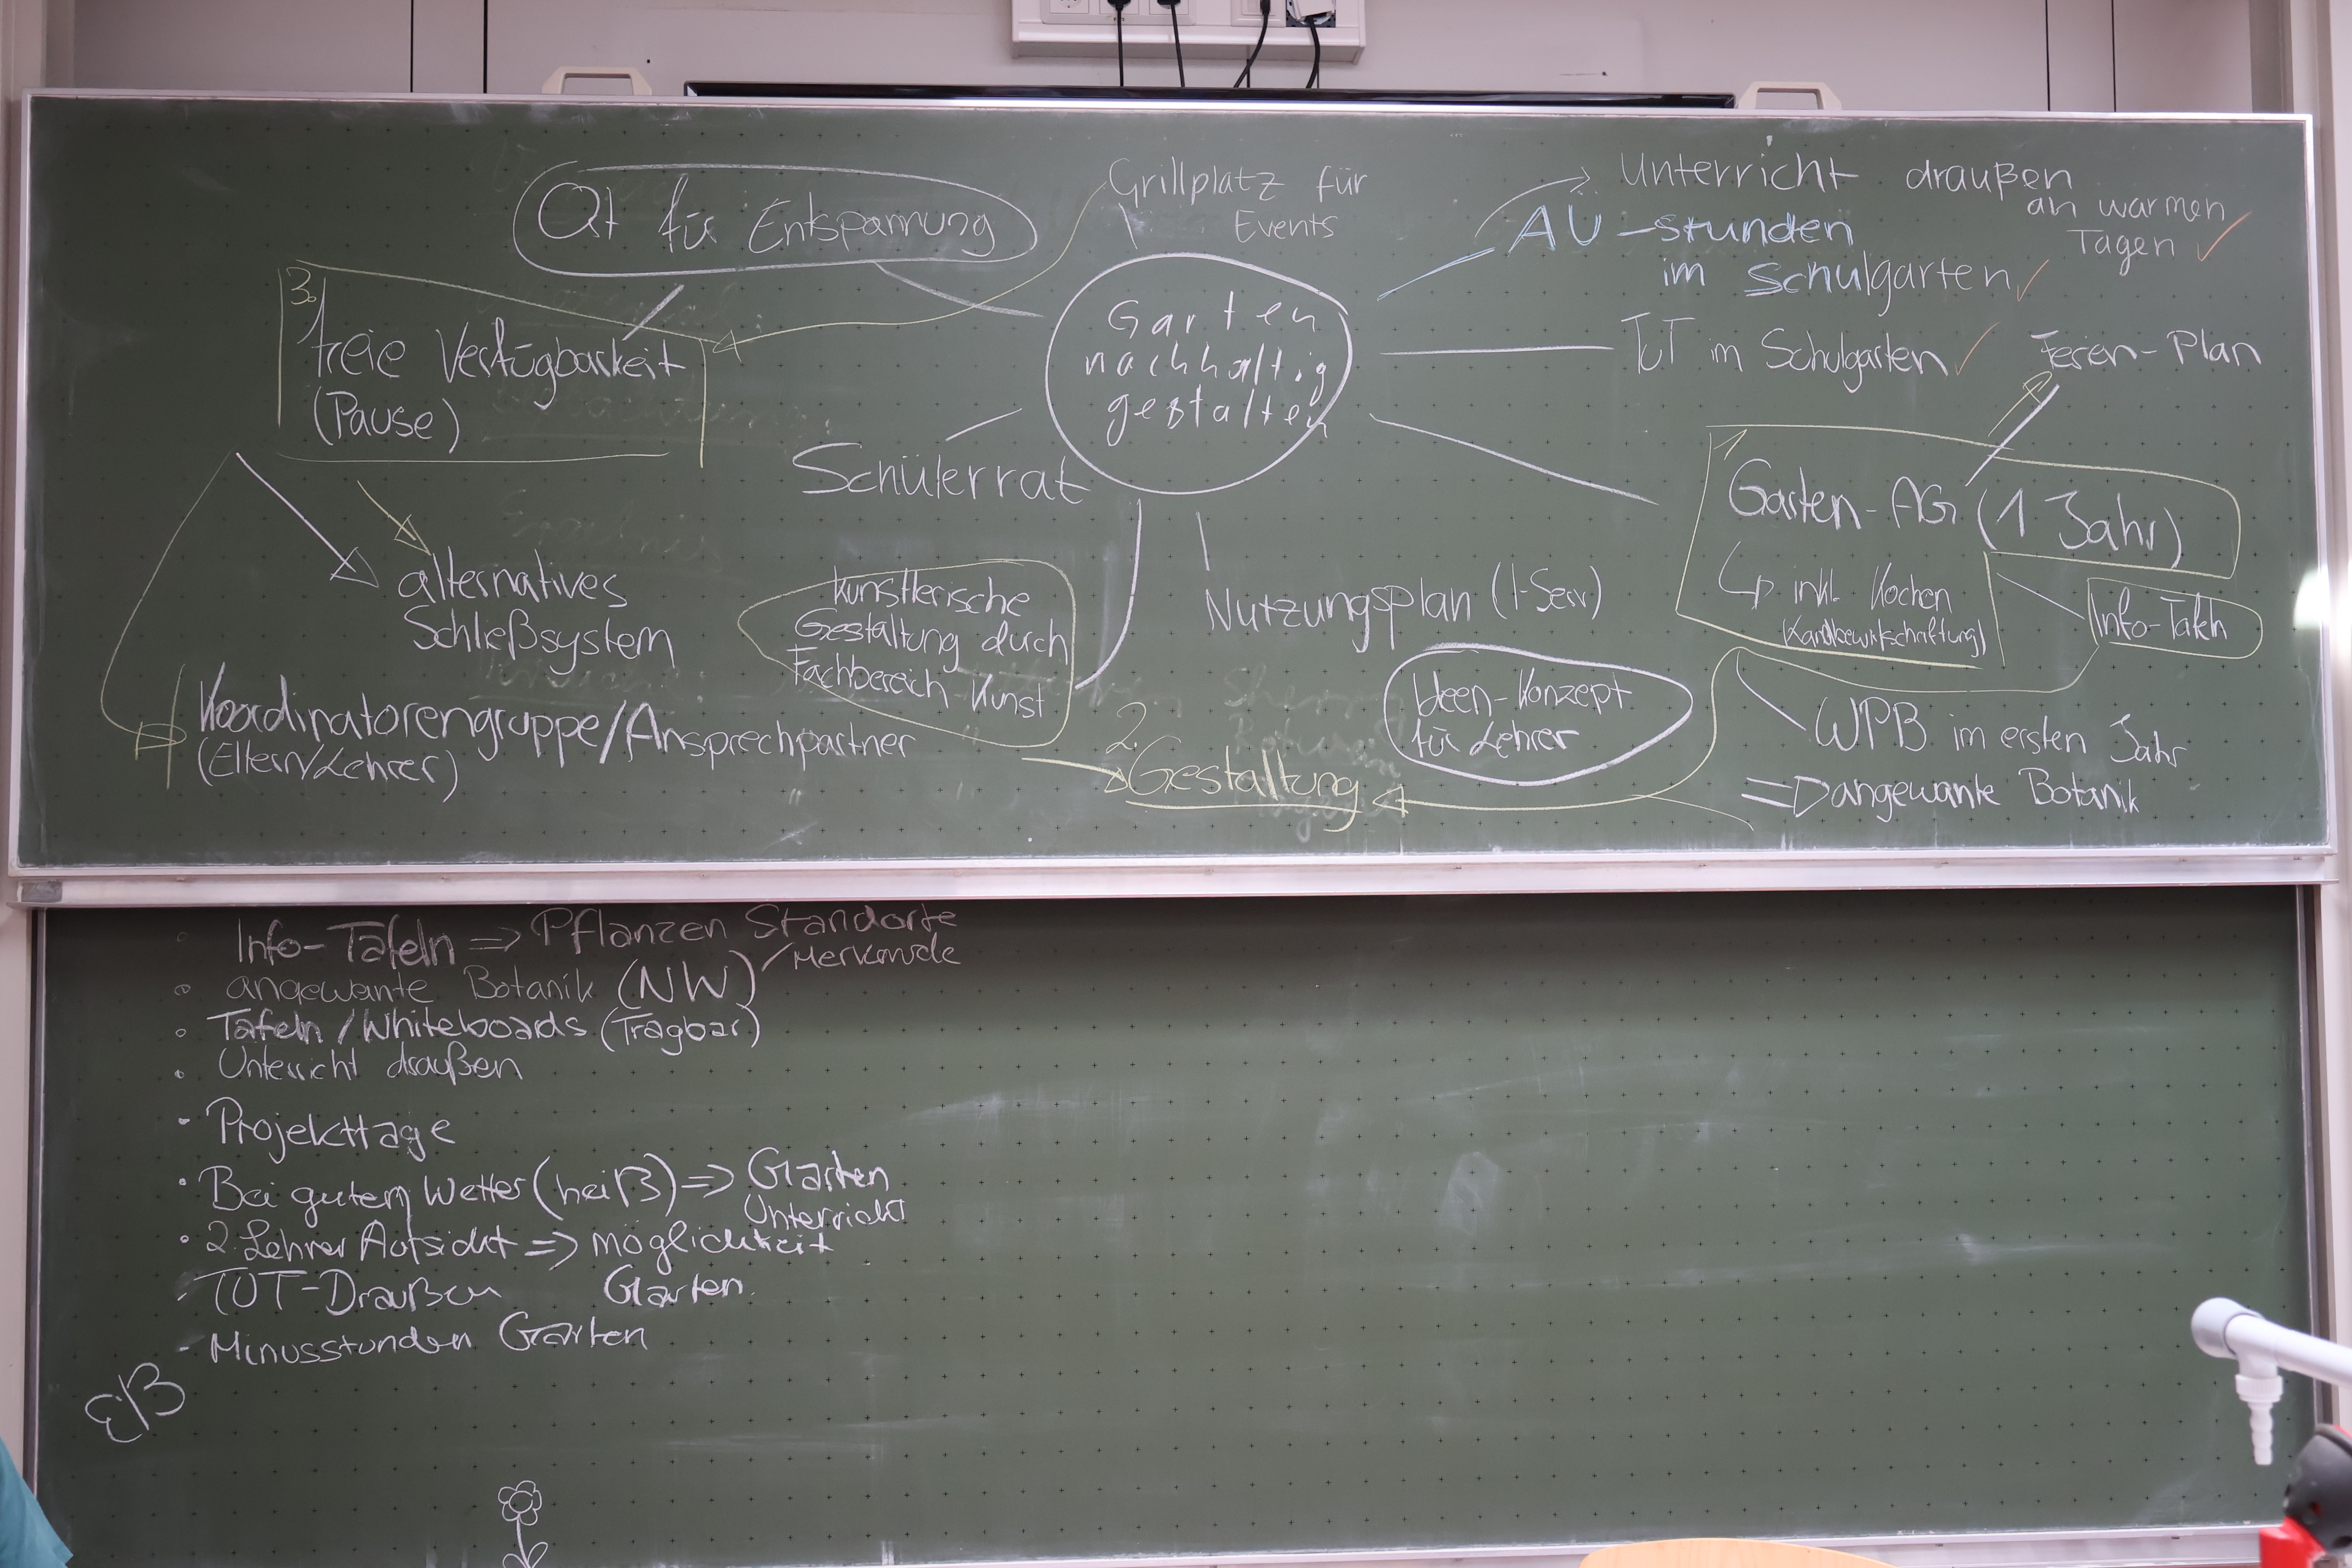 Ot für Entspannung
Grillplatz für
Events
Unterricht draußen
an warmen
Tagen ✓
AÜ-stunden
im Schulgarten ✓
TUT im Schulgarten ✓
Ferien-Plan
3.
freie Verfügbarkeit
(Pause)
Garten
nachhaltig
gestalten
Schülerrat
1
Garten-AG (1 Jahr)
↳ inkl. Kochen
(Landbewirtschaftung)
Info-Tafeln
alternatives
Schließsystem
künstlerische
Gestaltung durch
Fachbereich Kunst
Nutzungsplan (I-Serv)
Ideen-Konzept
für Lehrer
Koordinatorengruppe/Ansprechpartner
(Eltern/Lehrer)
2.
Gestaltung
WPB im ersten Jahr
⇒ angewante Botanik
• Info-Tafeln ⇒ Pflanzen Standorte
/Merkmale
• angewante Botanik (NW)
• Tafeln/Whiteboards (Tragbar)
• Unterricht draußen
- Projekttage
• Bei gutem Wetter (heiß) ⇒ Garten
Unterricht
• 2. Lehrer Aufsicht ⇒ möglichkeit
Garten.
- TUT-Draußen
- Minusstunden Garten